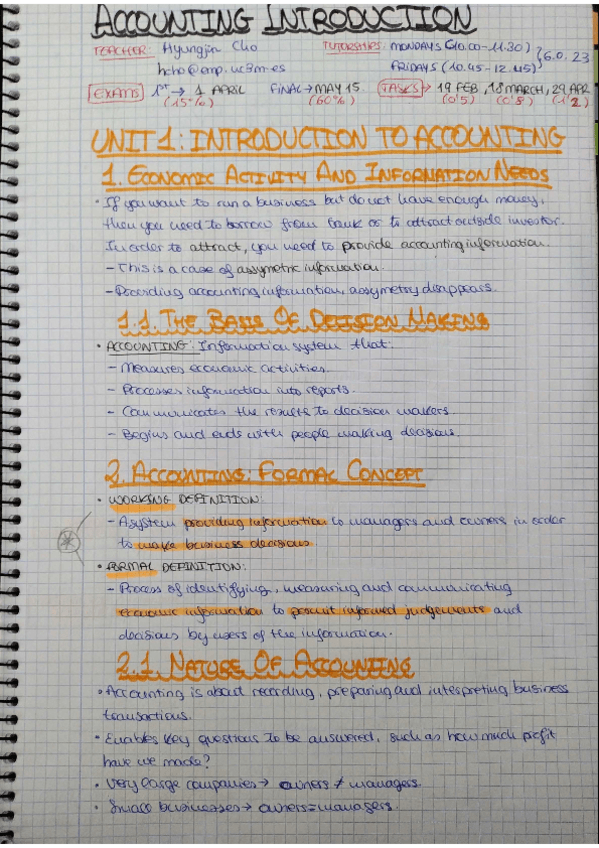 ACCOUNTING INTRODUCTION
TEACHER: Hyungjin Cho TUTORSHIPS: MONDAYS (10.00-11.30) } 6.0.23
hcho@emp.uc3m.es FRIDAYS (10.45-12.45)
EXAMS 1ST → 1 APRIL FINAL → MAY 15 TASKS → 19 FEB, 18 MARCH, 29 APR
(15%) (60%) (0'5) (0'5) (1'2)
UNIT 1: INTRODUCTION TO ACCOUNTING
1. ECONOMIC ACTIVITY AND INFORMATION NEEDS
· If you want to run a business but do not have enough money,
then you need to borrow from bank or to attract outside investor.
In order to attract, you need to provide accounting information.
- This is a case of assymetric information.
- Providing accounting information, assymetry disappears.
1.1. THE BASIS OF DECISION MAKING
· ACCOUNTING: Information system that:
- Measures economic activities.
- Processes information into reports.
- Communicates the results to decision makers.
- Begins and ends with people making decisions.
2. ACCOUNTING: FORMAL CONCEPT
· WORKING DEFINITION:
- A system providing information to managers and owners in order
to make business decisions.
· FORMAL DEFINITION:
- Process of identifying, measuring and communicating
economic information to permit informed judgements and
decisions by users of the information.
2.1. NATURE OF ACCOUNTING
· Accounting is about recording, preparing and interpreting business
transactions.
· Enables key questions to be answered, such as how much profit
have we made?
· Very large companies → owners ≠ managers.
· Small businesses → owners = managers.